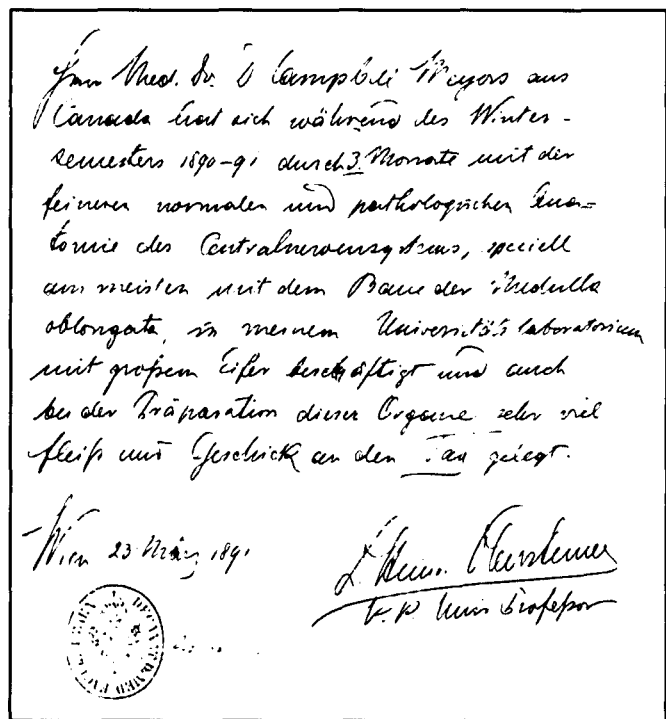 Herr Med. Dr. D Campbell Meyers aus
Canada hat sich während des Winter-
semesters 1890-91 durch 3 Monate mit der
feineren normalen und pathologischen Ana=
tomie des Centralnervensystems, speciell
am meisten mit dem Baue der Medulla
oblongata, in meinem Universitätslaboratorium
mit großem Eifer beschäftigt und auch
bei der Präparation dieser Organe sehr viel
Fleiß und Geschick an den Tag gelegt.
Wien 23 März 1891
Obersteiner
k. k. Univ Professor
DECANAT D. MED. FACULT. WIEN